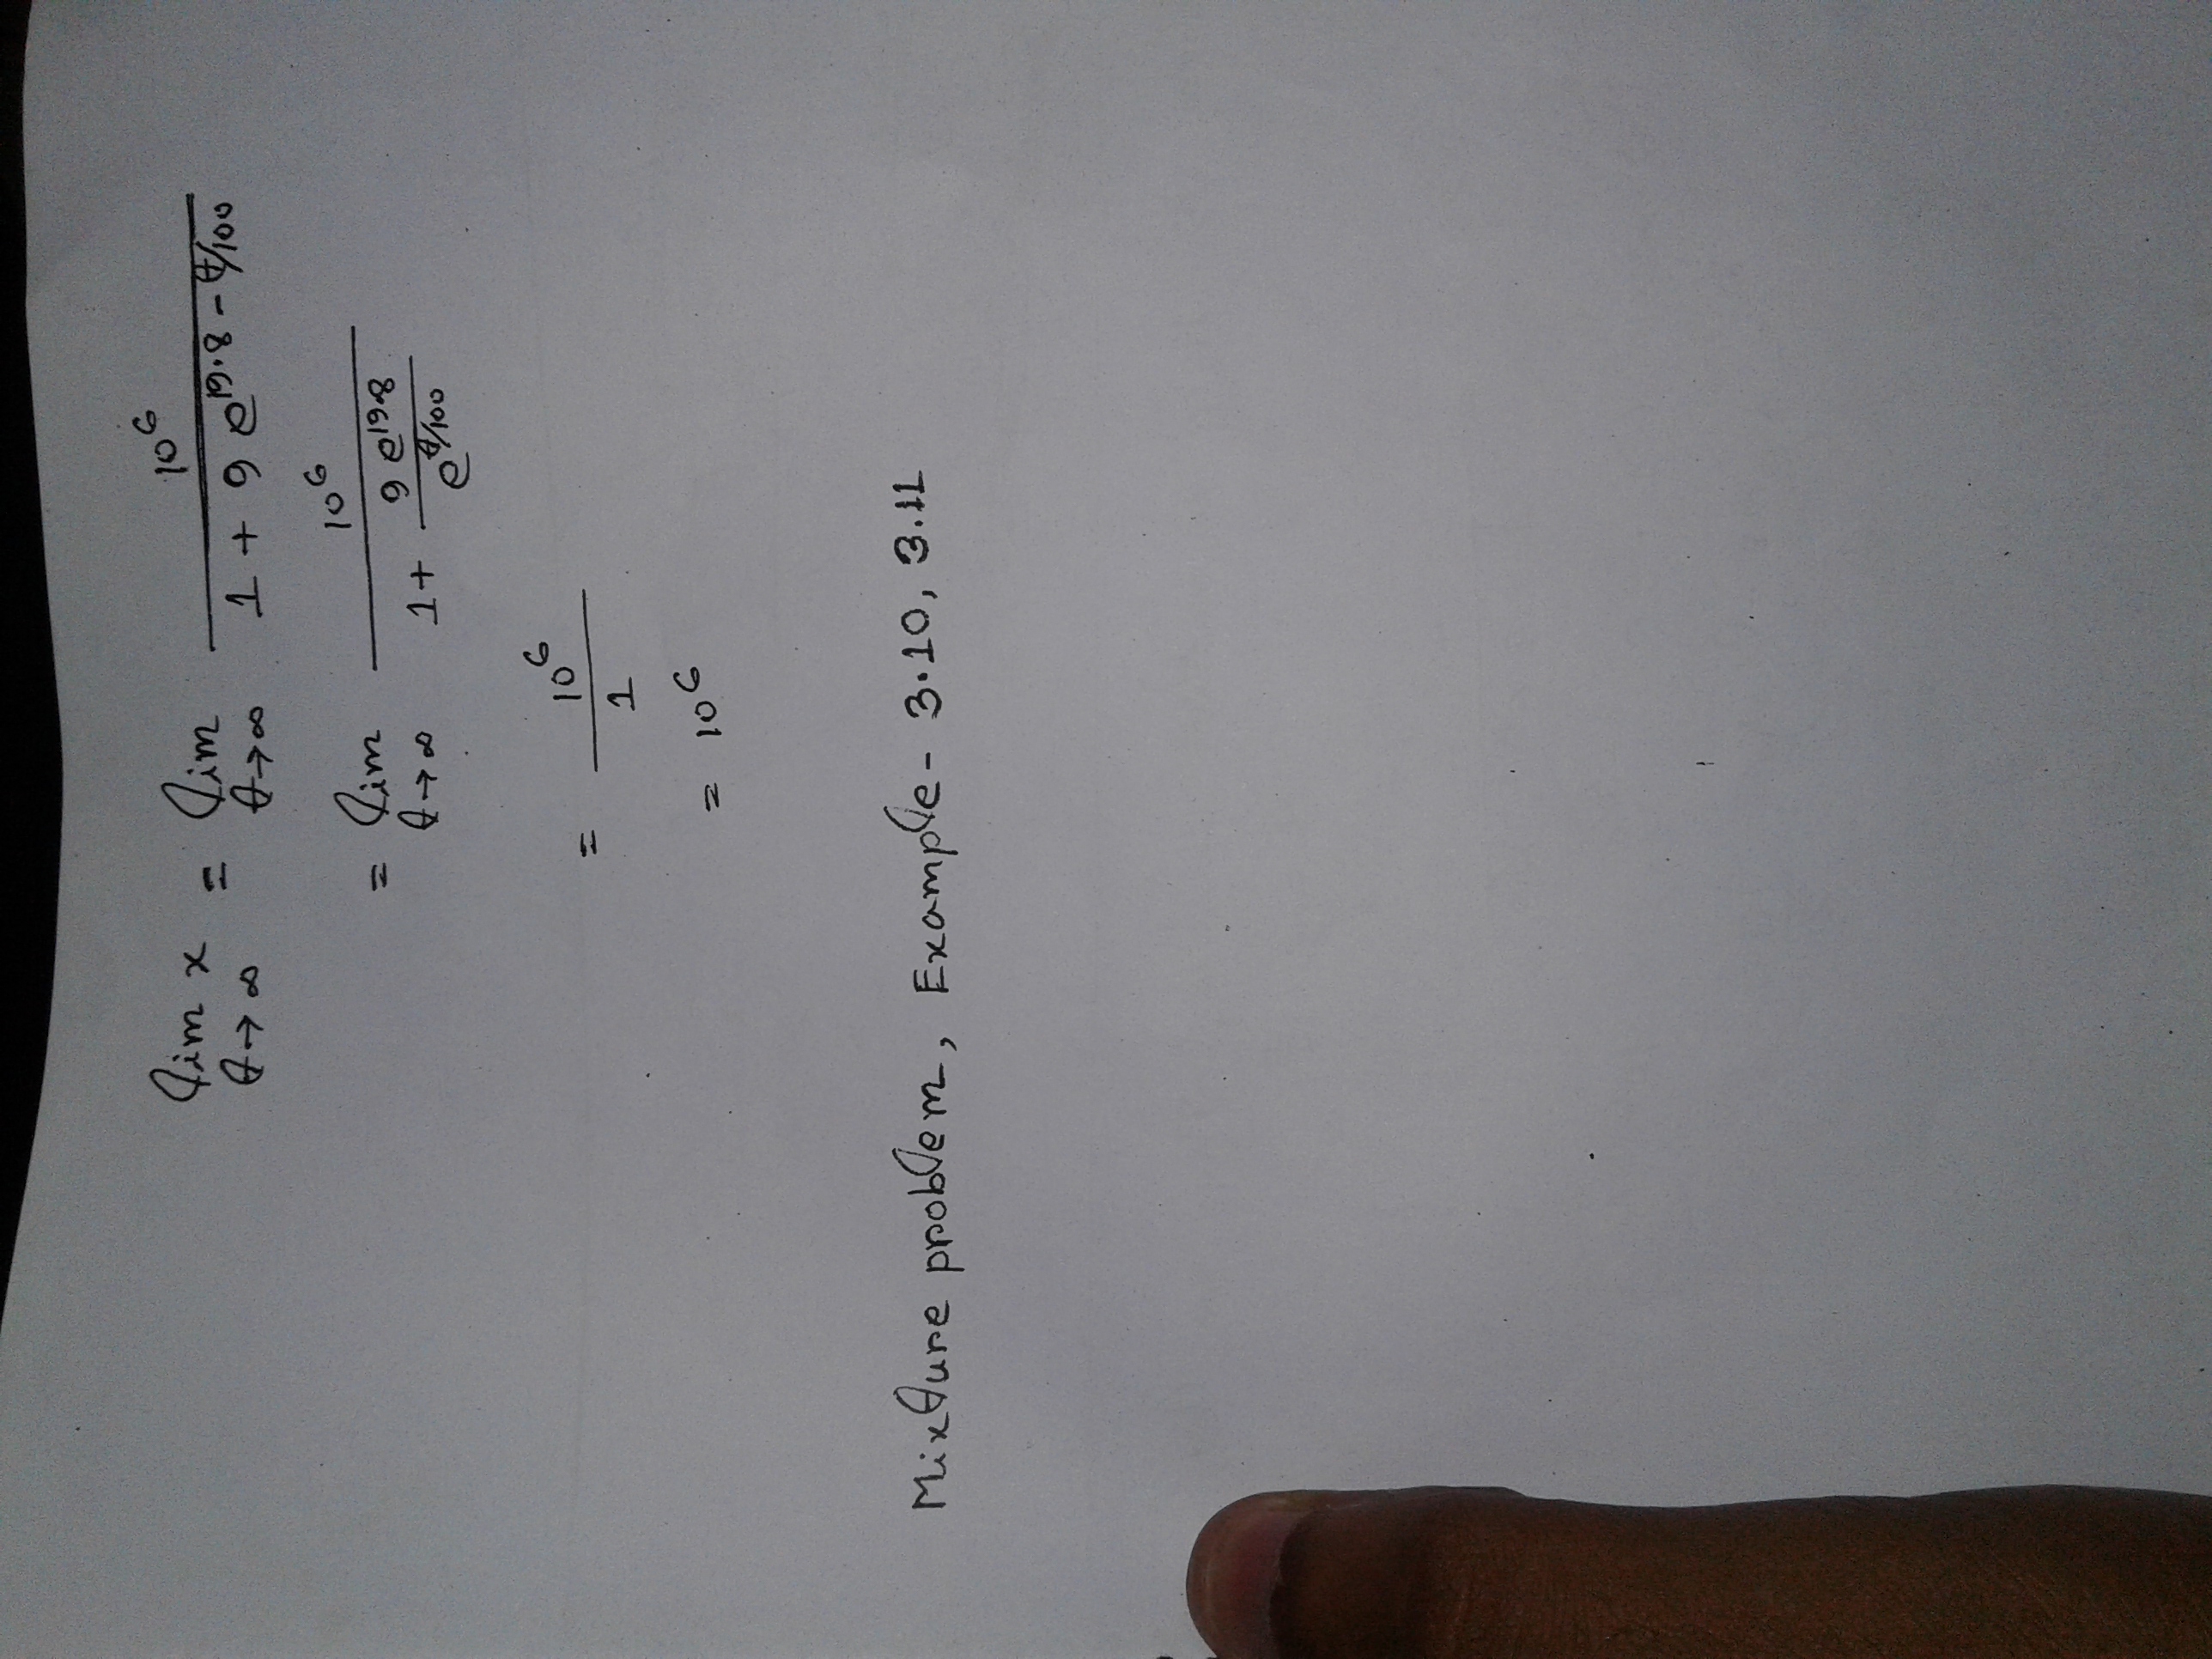 lim x = lim 10^6 / (1 + 9 e^(19.8 - t/100))
t→∞ t→∞
= lim 10^6 / (1 + 9 e^19.8 / e^(t/100))
t→∞
= 10^6 / 1
= 10^6
Mixture problem, Example - 3.10, 3.11